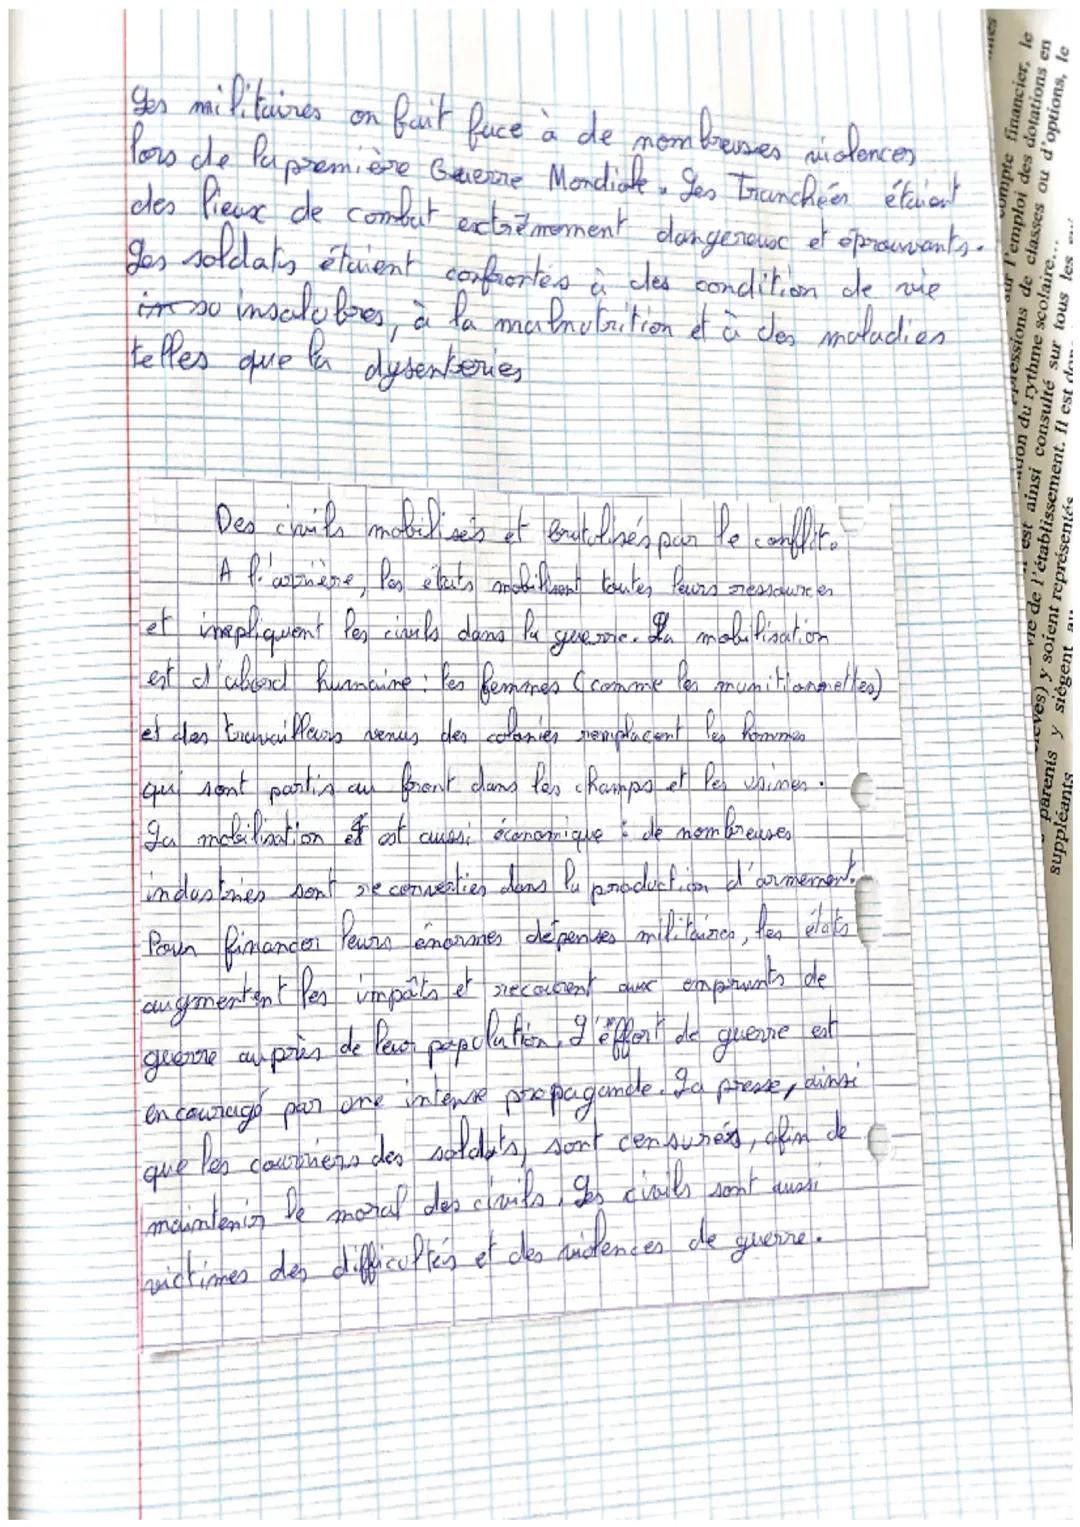 Les militaires on fait face à de nombreuses violences
lors de la première Guerre Mondiale. Les Tranchées étaient
des lieux de combat extrêmement dangereux et éprouvants.
Les soldats étaient confrontés à des condition de vie
insalubres, à la malnutrition et à des maladies
telles que la dysenteries
Des civils mobilisés et brutalisés par le conflit.
A l'arrière, les états mobilisent toutes leurs ressources
et impliquent les civils dans la guerre. La mobilisation
est d'abord humaine : les femmes (comme les munitionnettes)
et des travailleurs venus des colonies remplacent les hommes
qui sont partis au front dans les champs et les usines.
La mobilisation est aussi économique : de nombreuses
industries sont reconverties dans la production d'armement.
Pour financer leurs énormes dépenses militaires, les états
augmentent les impôts et recourent aux emprunts de
guerre auprès de leur population. L'effort de guerre est
encouragé par une intense propagande. La presse, ainsi
que les courriers des soldats, sont censurés, afin de
maintenir le moral des civils. Les civils sont aussi
victimes des difficultés et des violences de guerre.
compte financier, le
sur l'emploi des dotations en
pressions de classes ou d'options, le
ation du rythme scolaire...
est ainsi consulté sur tous les
vie de l'établissement. Il est donc
élèves) y soient représentés
parents y siègent au
suppléants